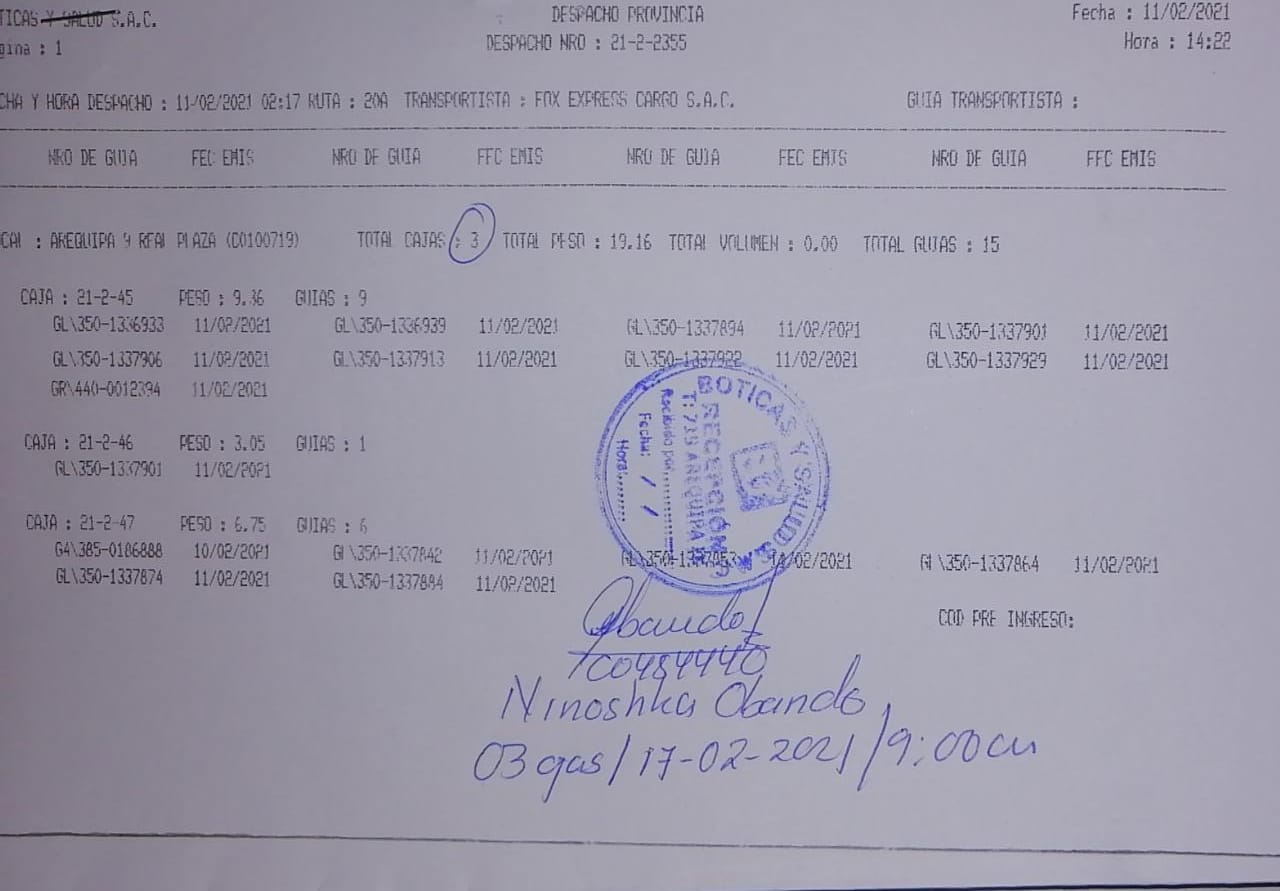 TICAS Y SALUD S.A.C. DESPACHO PROVINCIA Fecha : 11/02/2021
gina : 1 DESPACHO NRO : 21-2-2355 Hora : 14:22
CHA Y HORA DESPACHO : 11/02/2021 02:17 RUTA : 20A TRANSPORTISTA : FOX EXPRESS CARGO S.A.C. GUIA TRANSPORTISTA :
NRO DE GUIA FEC EMIS NRO DE GUIA FEC EMIS NRO DE GUIA FEC EMIS NRO DE GUIA FEC EMIS
CAL : AREQUIPA 9 REAL PLAZA (C0100719) TOTAL CAJAS : 3 TOTAL PESO : 19.16 TOTAL VOLUMEN : 0.00 TOTAL GUIAS : 15
CAJA : 21-2-45 PESO : 9.36 GUIAS : 9
GL\350-1336933 11/02/2021 GL\350-1336939 11/02/2021 GL\350-1337894 11/02/2021 GL\350-1337901 11/02/2021
GL\350-1337906 11/02/2021 GL\350-1337913 11/02/2021 GL\350-1337922 11/02/2021 GL\350-1337929 11/02/2021
GR\440-0012394 11/02/2021
CAJA : 21-2-46 PESO : 3.05 GUIAS : 1
GL\350-1337901 11/02/2021
CAJA : 21-2-47 PESO : 6.75 GUIAS : 6
G4\385-0186888 10/02/2021 GL\350-1337842 11/02/2021 11/02/2021 GL\350-1337864 11/02/2021
GL\350-1337874 11/02/2021 GL\350-1337884 11/02/2021
COD PRE INGRESO:
BOTICAS Y SALUD S.A.C
RECEPCIÓN
T: 715 AREQUIPA
Recibido por:
Fecha: / /
Hora:
Obando
70484440
Ninoshka Obando
03 gas / 17-02-2021 / 9:00am